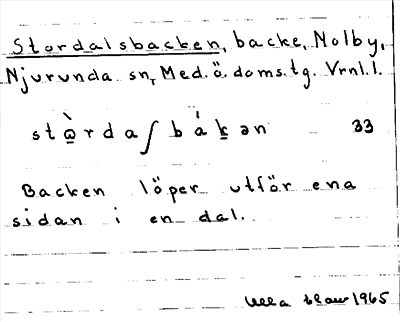 Stordalsbacken, backe, Nolby,
Njurunda sn, Med. ö. doms. tg. Vrnl. l.
stò̱rdaʃbáḵən 33
Backen löper utför ena
sidan i en dal.
1965